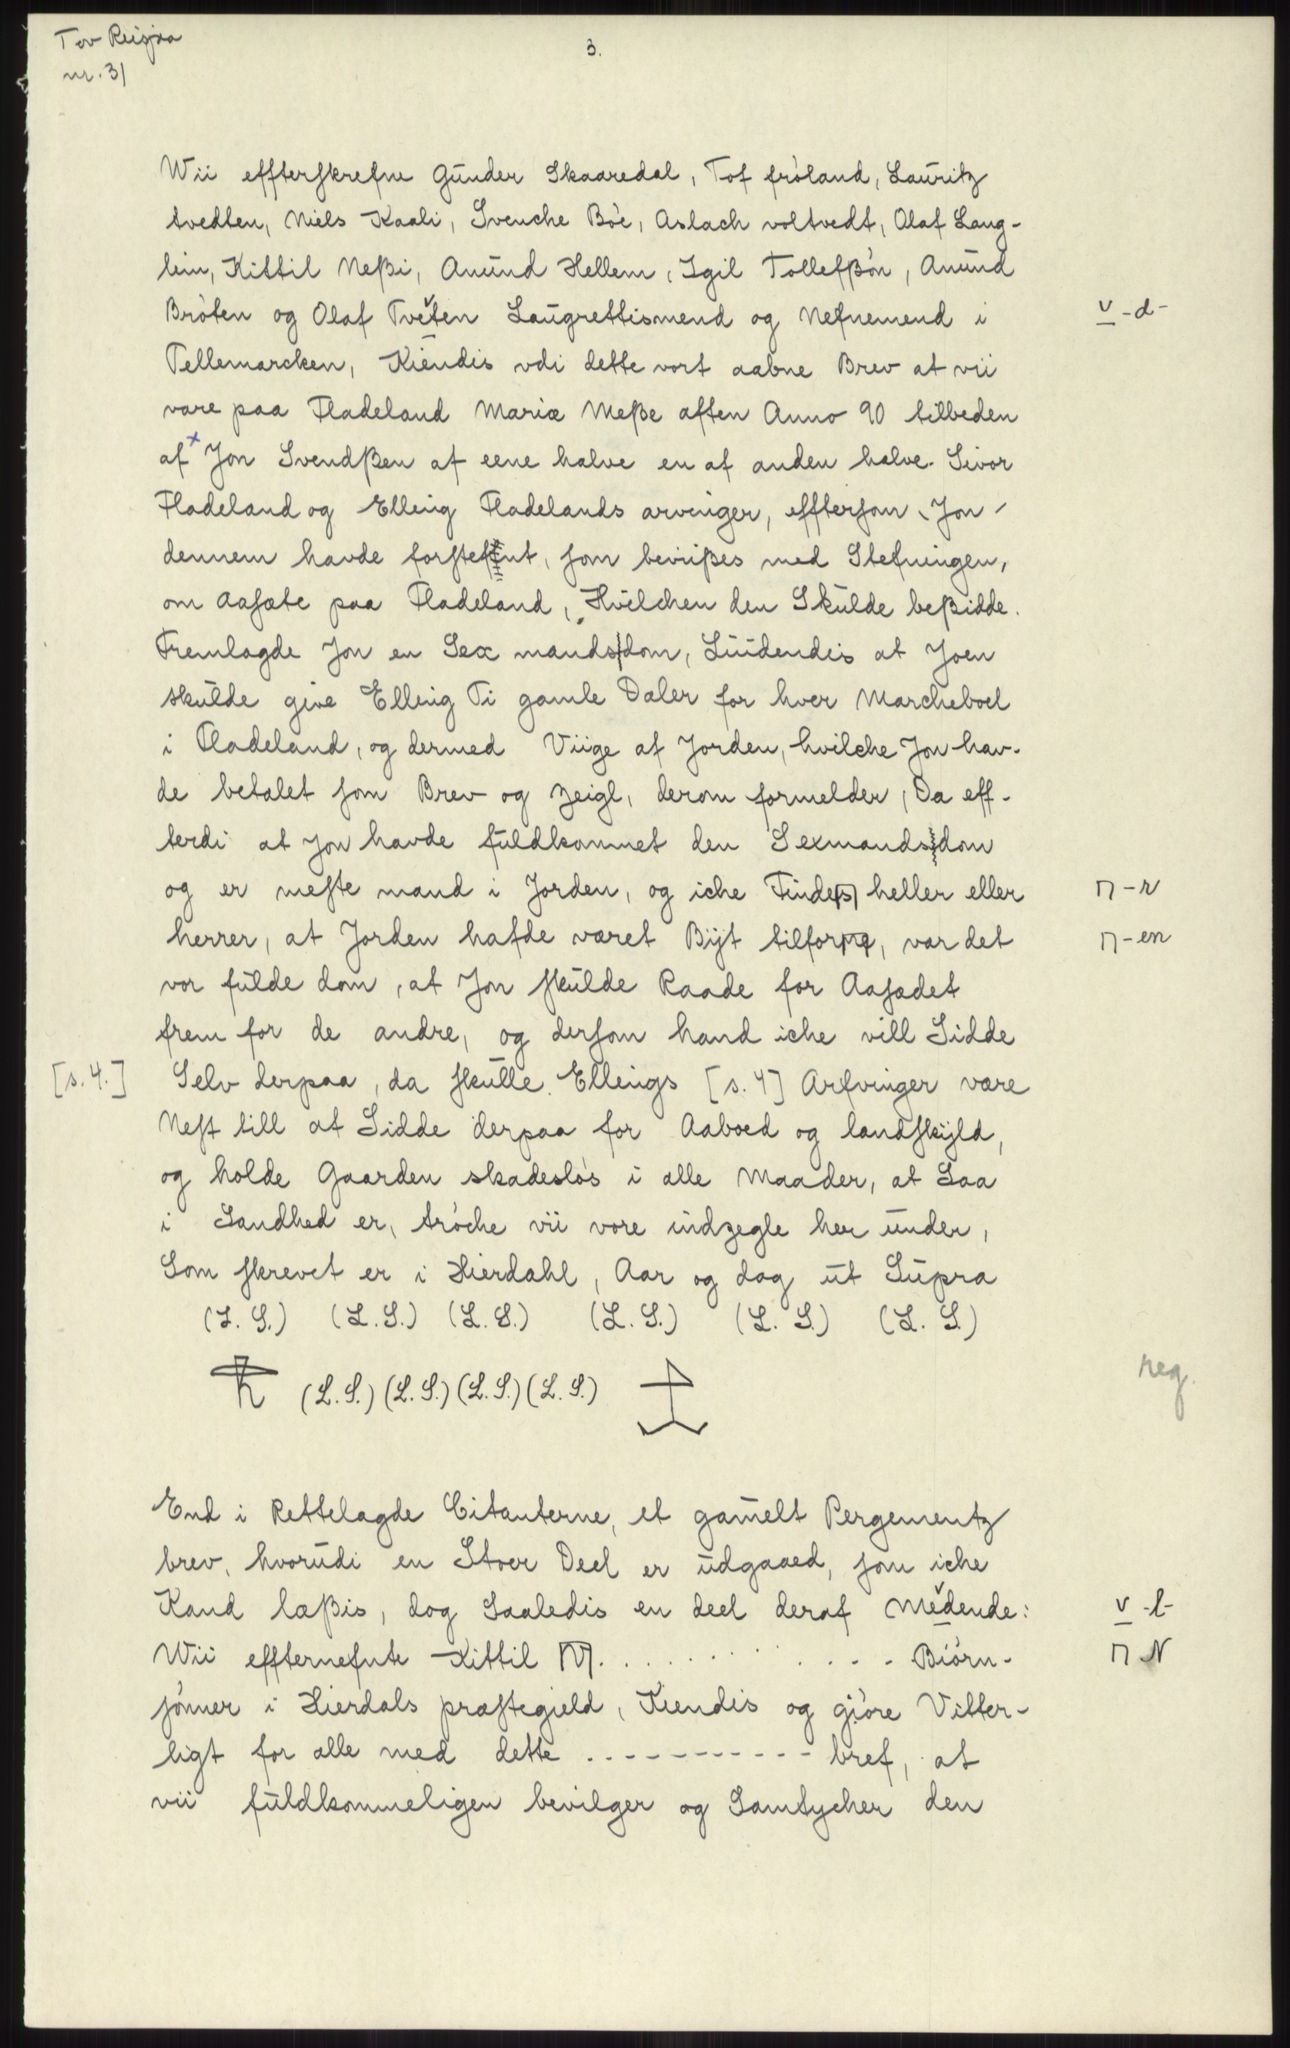 Tov Reisjaa
nr. 31
3.
Wii effterskrefne Gunder Skaaredal, Tof fróland, Lauritz
tvedten, Niels Kaali, Svenche Bóe, Aslach voltvedt, Olaf Lang-
leim, Kittil Neßi, Anund Hellem, Igil Tollefßón, Anund
Bróten og Olaf Tveten Laugrettismend og Nefnemend i
v -d-
Tellemarcken, Kiendis udi dette vort aabne Brev at vii
vare paa Fladeland Mariæ Meße aften Anno 90 tilbeden
af x Jon Svendßen af eene halve en af anden halve. Sivor
Fladeland og Elling Fladelands arvinger, efftersom Jon
dennem havde forstefnt, som beviißes med Stefningen,
om Aasæte paa Fladeland, Hvilchen den Skulde beßidde.
Fremlagde Jon en Sex mandsdom, Luudendis at Joen
skulde give Elling Ti gamle Daler for hver Marcheboel
i Fladeland, og dermed Viige af Jorden, hvilche Jon hav-
de betalet som Brev og Zeigl, derom formelder, Da eff-
terdi at Jon havde fuldkommet den Sexmandsdom
og er meste mand i Jorden, og iche Findes heller eller
⊓ -r
herrer, at Jorden hafde været Bijt tilforne, var det
⊓ -en
vor fulde dom, at Jon skulde Raade for Aasædet
frem for de andre, og dersom hand iche vill Sidde
[s. 4.] Selv derpaa, da skulle Ellings [s. 4] Arfvinger være
Nest till at Sidde derpaa for Aaboed og landskyld,
og holde Gaarden skadeslós i alle Maader, at Saa
i Sandhed er, tróche vii vore indzegle her under,
Som skrevet er i Hierdahl, Aar og dag ut Supra
(L. S.) (L. S.) (L. S.) (L. S.) (L. S.) (L. S.)
(L. S.) (L. S.) (L. S.) (L. S.)
neg.
End i Rettelagde Citanterne, et gamelt Pergementz
brev, hvorudi en Stoer Deel er udgaaed, som iche
Kand læßis, dog Saaledis en deel deraf Medende:
v -l-
Wii effternefnte Kittil N. . . . . . . . . . . Biórn-
⊓ N
sónner i Hierdals præstegield, Kiendis og gióre Vitter-
ligt for alle med dette . - - - - - - - - - - bref, at
vii fuldkommeligen bevilger og Samtycher den